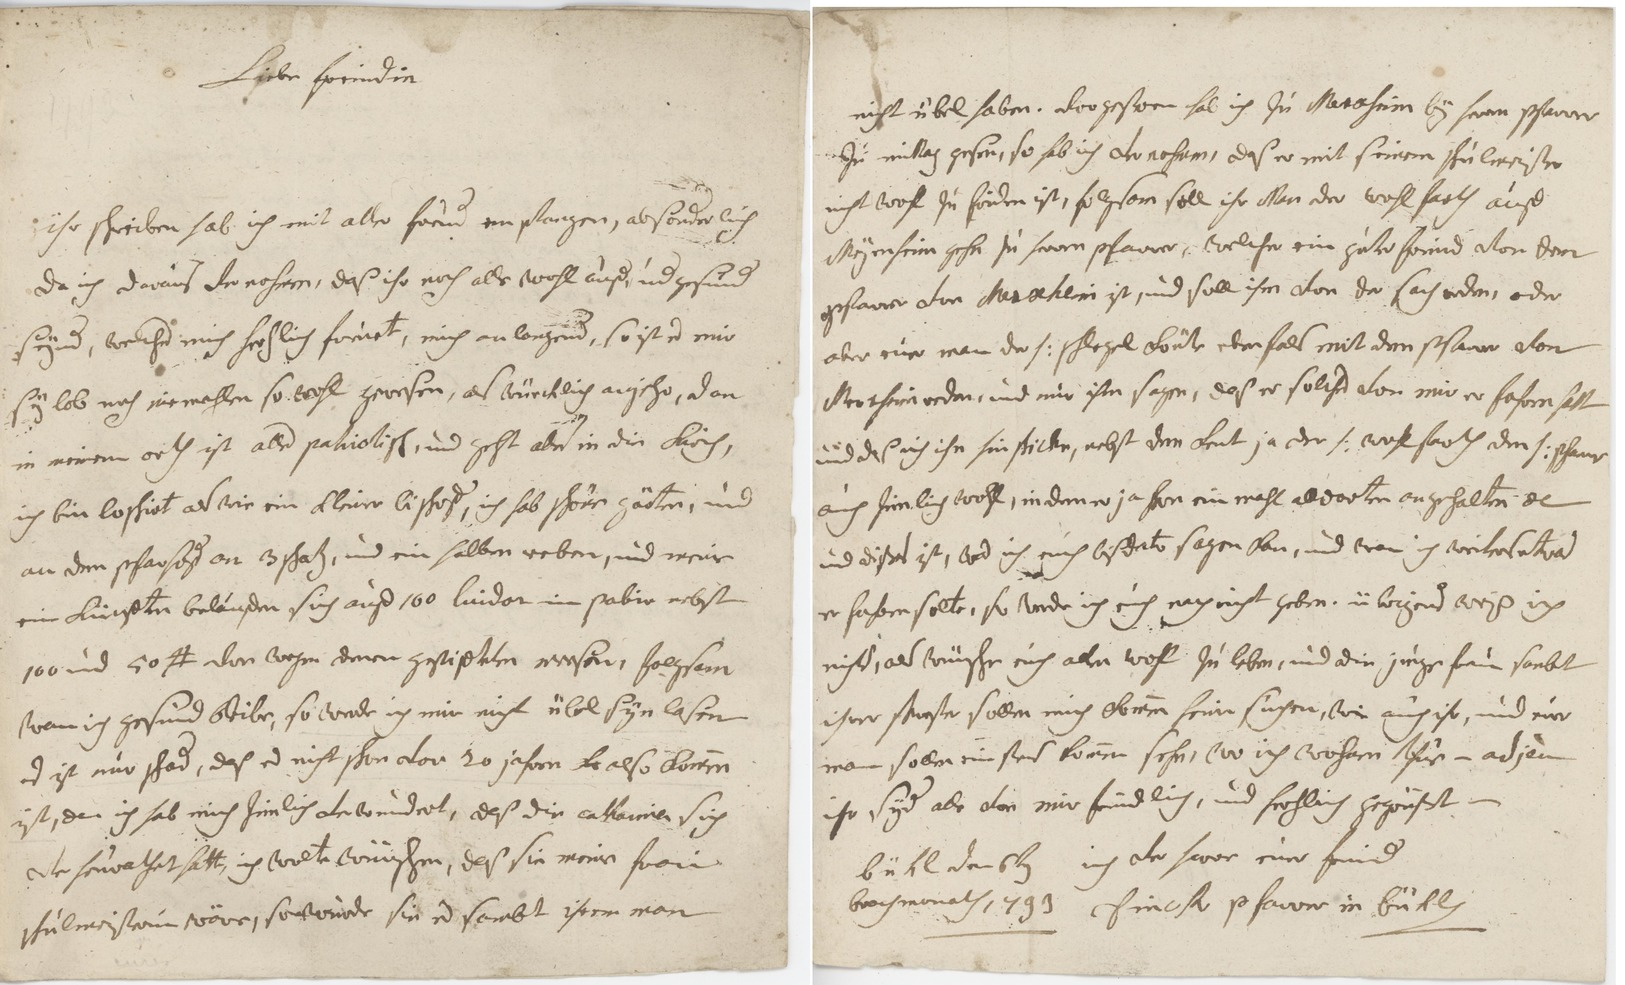 Liebe freindin
ihr schreiben hab ich mit aller freud em pfangen, absonderlich
da ich daraus ver nohmen, daß ihr noch alle wohl auf, und gesund
seÿnd, welches mich hertzlich freuet, mich an langend, so ist es mir
gott lob noch niemahlen so wohl gewesen, als würcklich anjezo, dan
in meinem orth ist alles patriotisch, und geht alles in die kirch,
ich bin loschirt als wie ein kleiner bischoff, ich hab schöne gärten, und
an dem pfarhoff an 3 schatz, und ein halben reben, und meine
ein künfften belauffen sich auf 160 luidor in pabir nebst
100 und 50 ℔ von wegen denen gestiffteten messen, folgsam
wan ich gesund bleibe, so werde ich mir nicht übel seyn lasen
es ist nur schad, daß es nicht schon vor 20 jahren also komen
ist, den ich hab mich zimlich verwundert, daß die catharina sich
ver heürathet hatt, ich wolte wünschen, daß sie meine frau
schulmeisterin wäre, so wurde sie es sambt ihrem man
nicht übel haben. vorgestern hab ich zu Merxheim bÿ herrn pfarrer
zu mittag gesen, so hab ich ver nohmen, daß er mit seinem schulmeister
nicht wohl zu friden ist, folgsam soll ihr man der wohl farth auf
Meÿenheim gehn zu herrn pfarrer, welcher ein guter freind von dem
pfarrer von Merxheim ist, und soll ihm von der sach reden, oder
aber euer man der /: schlegel könte eben fals mit dem pfarrer von
Merxheim reden, und nur ihm sagen, daß er solches von mir er fahren hatt
und daß ich ihn hin schicke, nebst dem kent ja der /: wohl farth den /: pfarrer
auch zimlich wohl, in dem er ja schon ein mahl alldorten angehalten
und dises ist, was ich euch disfals sagen kan, und wan ich weiters etwas
er fahren solte, so werde ich euch nachricht geben. übrigens weiß ich
nichts, als wünsche euch allen wohl zu leben, und die junge frau sambt
ihrer schwester sollen mich komen heim suchen, wie auch ihr, und euer
man sollen einsmal komen sehn, wo ich wohnen thue – adjeu
ihr seyd alle von mir freündlich, und hertzlich gegrüsst –
bühl den 6t
brachmonath, 1793
ich ver harre euer freind
pfarrer in bühl